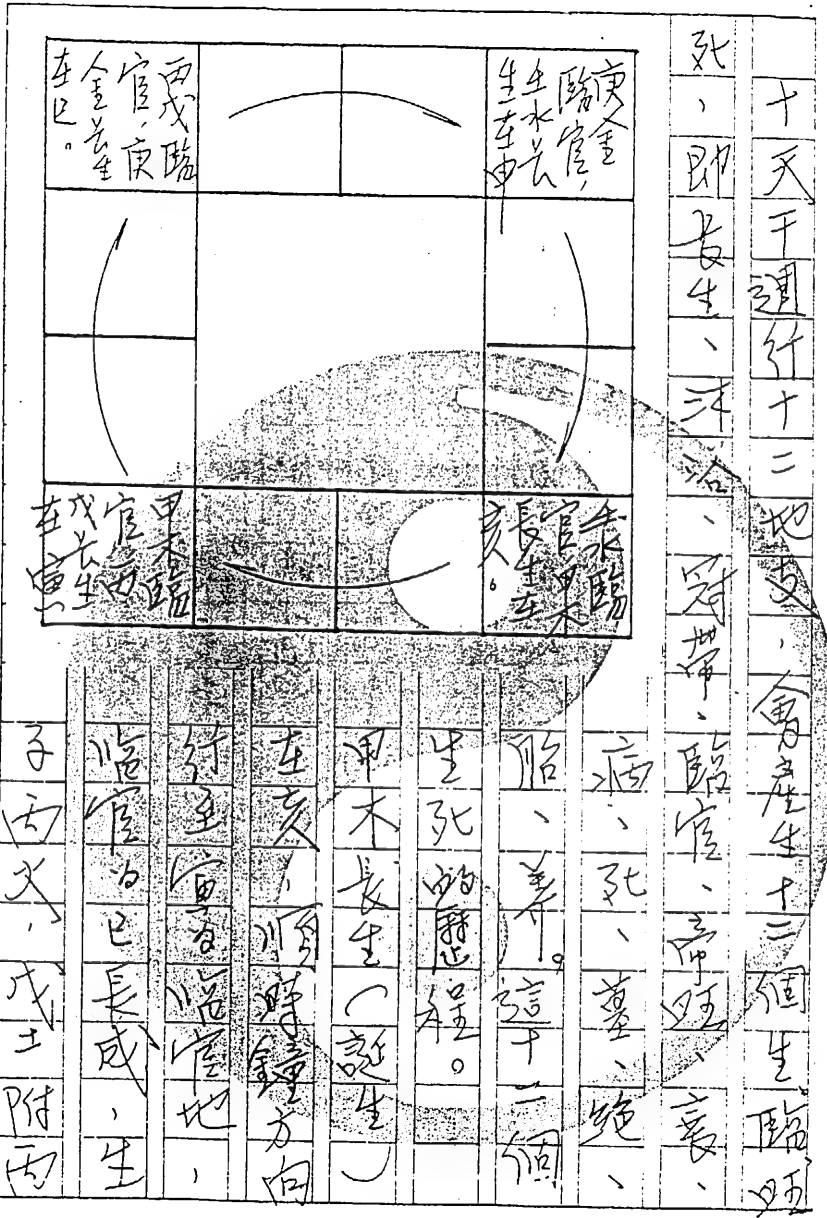 十天干週行十二地支，會產生十二個生、臨旺、
死、即長生、沐浴、冠帶、臨官、帝旺、衰、
病、死、墓、絕、
胎、養。這十二個
生死的歷程。
甲木長生（誕生）
在亥，順時鐘方向
行至寅為臨官地，
臨官為已長成，生
子丙火，戊土附丙
庚金
臨官，
壬水長
生在申
丙戊臨
官，庚
金長生
在巳。
壬水臨
官甲木
長生在
亥。
甲木臨
官丙
戊長生
在寅